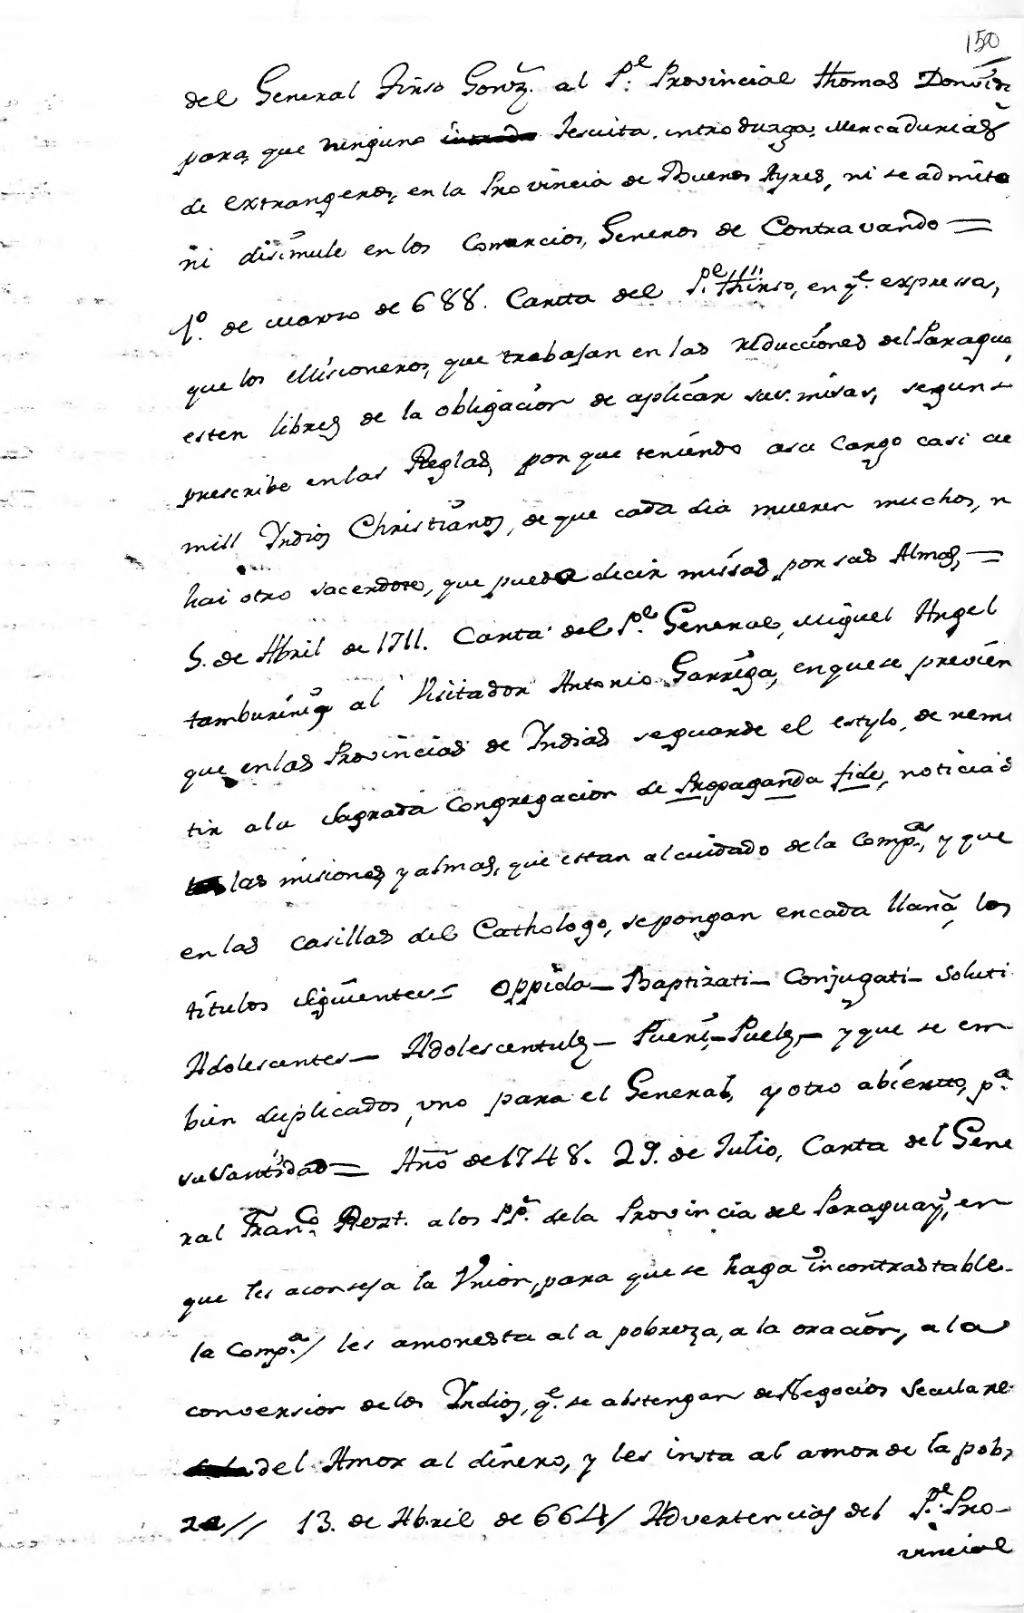 150
del General Tirso Gonz. al P.e Provincial Thomas Donvide
para, que ninguno Jesuita, introduzga, Mercadurias
de extrangeros, en la Provincia de Buenos Ayres, ni se admita
ni disimule en los Comercios, Generos de Contravando =
1.o de Marzo de 688. Cartta del P.e Thirso, en q.e expressa,
que los Missioneros, que trabajan en las reducciones del Paragua
esten libres de la obligacion de aplicar sus misas, segun s
prescribe en las Reglas, por que teniendo a su Cargo casi ae
mill Yndios Christianos, de que cada dia mueren muchos, n
hai otro sacerdote, que pueda decir missas por sus Almas, =
5. de Abril de 1711. Carta del P.e General, Miguel Angel
tamburini al Visitador Antonio Garriga, en que se previen
que en las Provincias de Indias se guarde el estylo, de remi
tir a la Sagrada Congregacion de Propaganda fide, noticias
las misiones y almas, que estan al cuidado de la Comp.a, y que
en las Casillas del Cathologo, se pongan en cada llana, los
titulos siguientes = Oppida — Baptizati — Conjugati — Soluti
Adolescentes — Adolescentulę — Pueri — Puelę — y que se em
bien duplicados, uno para el General, y otro abiertto, p.a
su Santidad = Año de 1748. 29. de Julio, Carta del Gene
ral Fran.co Rezt. a los PP. de la Provincia del Paraguay, en
que les aconseja la Union, para que se haga incontrastable
la Comp.a / les amonesta a la pobreza, a la oracion, a la
conversion de los Yndios, q.e se abstengan de Negocios Seculare
del Amor al dinero, y les insta al amor de la pobr
za // 13. de Abril de 664 / Advertencias del P.e Pro-
vincial